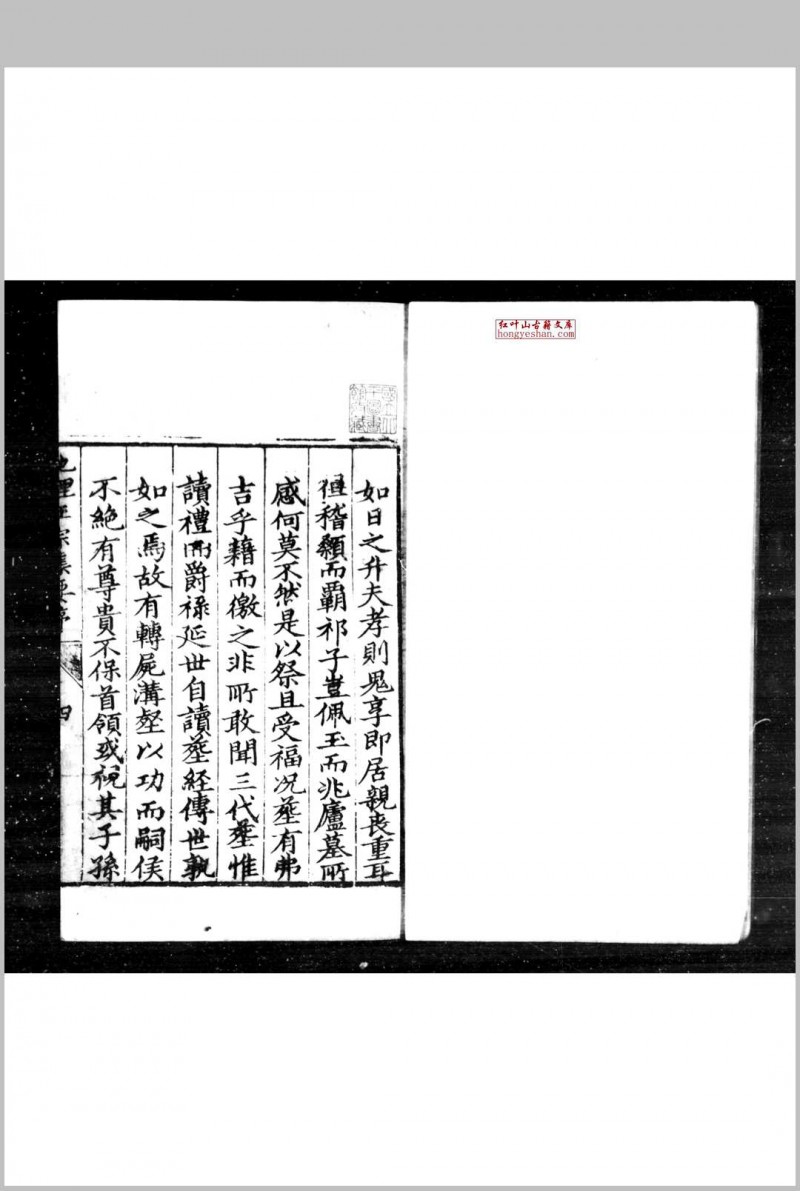 红叶山古籍文库
hongyeshan.com
如日之升夫孝則鬼享即居親喪重耳
稽顙而覇祁子豈佩玉而兆廬墓所
感何莫不然是以祭且受福况塟有弗
吉乎藉而徼之非所敢聞三代塟惟
讀禮而爵祿延世自讀塟經傳世孰
如之焉故有轉屍溝壑以功而嗣侯
不絶有尊貴不保首領或祝其子孫
地理正宗集要序
四